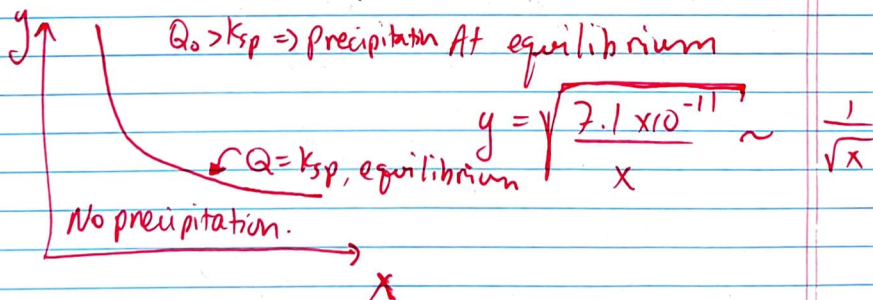 y Q₀ > Ksp => precipitation At equilibrium
y = √(7.1 x10⁻¹¹ / x) ~ 1/√x
Q = Ksp, equilibrium
No precipitation.
x